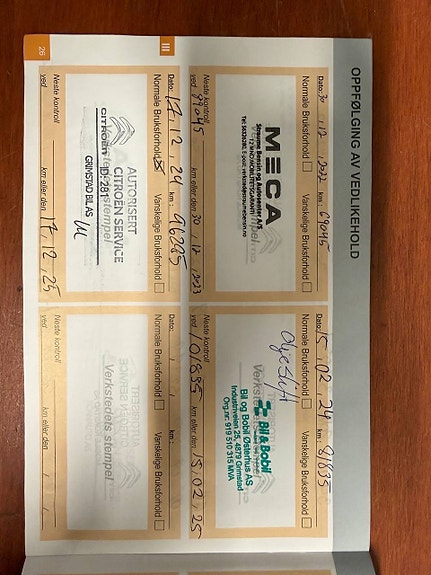 OPPFØLGING AV VEDLIKEHOLD
Dato: 30 . 12 . 2022 km : 69045
Normale Bruksforhold Vanskelige Bruksforhold
MECA
Staurme Bensin og Autosenter A/S
Neste kontroll
ved 99045 km eller den 30 12 2023
Dato: 15 . 02 . 24 km : 81835
Normale Bruksforhold Vanskelige Bruksforhold
Oljeskift
Bil & Bobil
Verkstedets stempel
Bil og Bobil Østerhus AS
Industriveien 25, 4879 Grimstad
Org.nr: 919 510 315 MVA
Neste kontroll
ved 101835 km eller den 15 . 02 . 25
III
Dato: 17 . 12 . 24 km : 96285
Normale Bruksforhold Vanskelige Bruksforhold
AUTORISERT
CITROËN SERVICE
Verkstedets stempel
CITROËN ID-281
GRIMSTAD BIL AS
Neste kontroll
ved km eller den 17 . 12 . 25
Dato: km :
Normale Bruksforhold Vanskelige Bruksforhold
Verkstedets stempel
Neste kontroll
ved km eller den
26